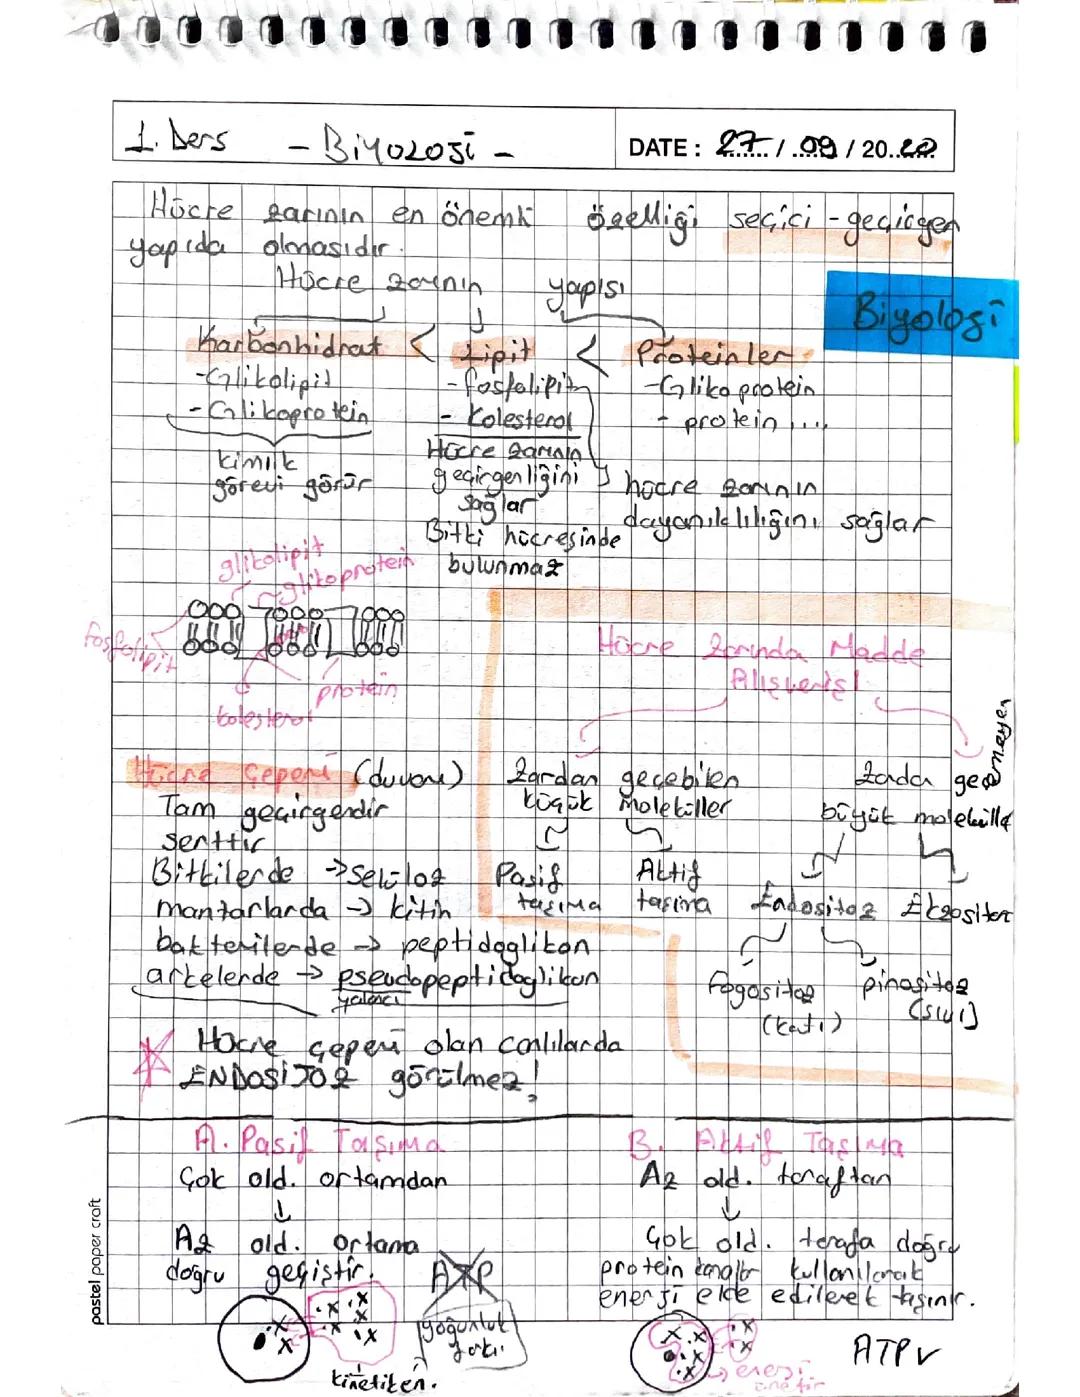 1. Ders - Biyoloji -
DATE: 27/09/2020
Hücre zarının en önemli özelliği seçici-geçirgen
yapıda olmasıdır.
Biyoloji
Hücre zarının yapısı
Karbonhidrat < Lipit < Proteinler
-Glikolipit
-Glikoprotein
kimlik
görevi görür
-fosfolipit
- Kolesterol
Hücre zarının
geçirgenliğini
sağlar
Bitki hücresinde
bulunmaz
-Glikoprotein
- protein ....
hücre zarının
dayanıklılığını sağlar
glikolipit
glikoprotein
fosfolipit
protein
kolesterol
Hücre Zarında Madde
Alışverişi
Zardan geçebilen
küçük moleküller
Pasif
taşıma
Aktif
taşıma
Zarda geçemeyen
büyük molekülle
Endositoz
Ekzositoz
fagositoz
(katı)
pinositoz
(sıvı)
Hücre Çeperi (duvarı)
Tam geçirgendir
serttir
Bitkilerde → Selüloz
mantarlarda → kitin
bakterilerde → peptidoglikan
arkelerde → pseudopeptidoglikan
yalancı
Hücre çeperi olan canlılarda
ENDOSİTOZ görülmez!
A. Pasif Taşıma
Çok old. ortamdan
↓
Az old. ortama
doğru geçiştir.
ATP
yoğunluk
farkı
kinetik en.
B. Aktif Taşıma
Az old. taraftan
↓
Çok old. tarafa doğru
protein kanallar kullanılarak
enerji elde edilerek taşınır.
ATP ✓
enerji
pastel paper craft